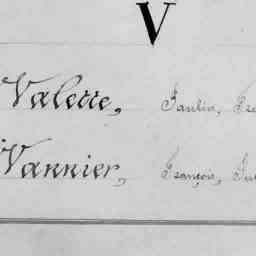 V
Valette, Paulin,
Vannier, François,